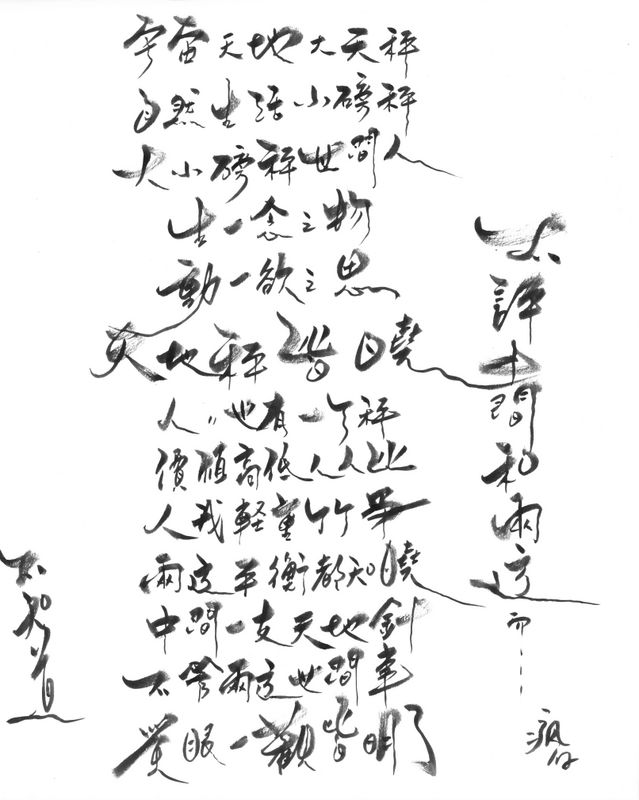 不評中間和兩邊而……
宇宙天地大天秤
自然生活小磅秤
大小磅秤世間人
生一念之物
動一欲之思
天地秤皆曉
人〃也有一个秤
價值高低人人比
人我軽重
兩边平衡都知曉
中間一支天地針
不管兩边世間
覺眼一觀皆明了
不知道